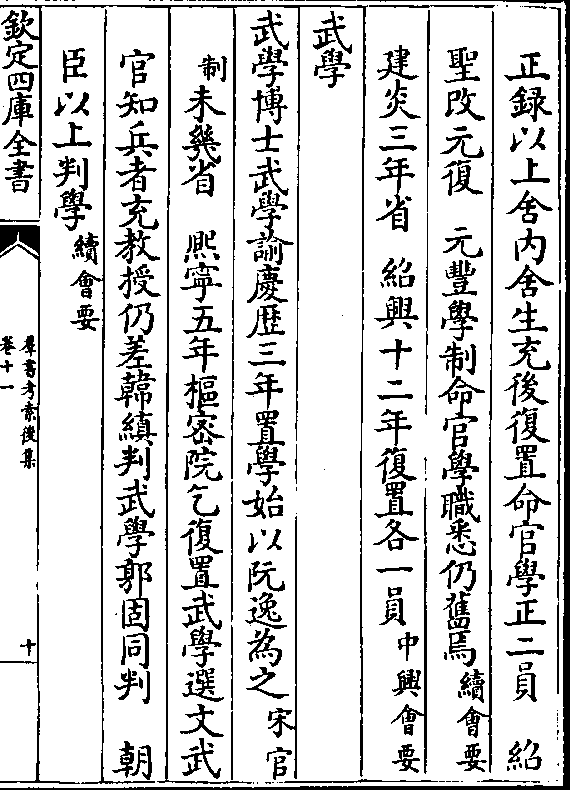 正録以上舍内舍生充後復置命官學正二員　紹
聖改元復　元豐學制命官學職悉仍舊焉續會要
建炎三年省　紹興十二年復置各一員中興會要
武學
武學博士武學諭慶歴三年置學始以阮逸為之宋官
制未幾省　熈寧五年樞宻院乞復置武學選文武
官知兵者充教授仍差韓縝判武學郭固同判　朝
臣以上判學續會要
欽定四庫全書
羣書考索後集
卷十一
十